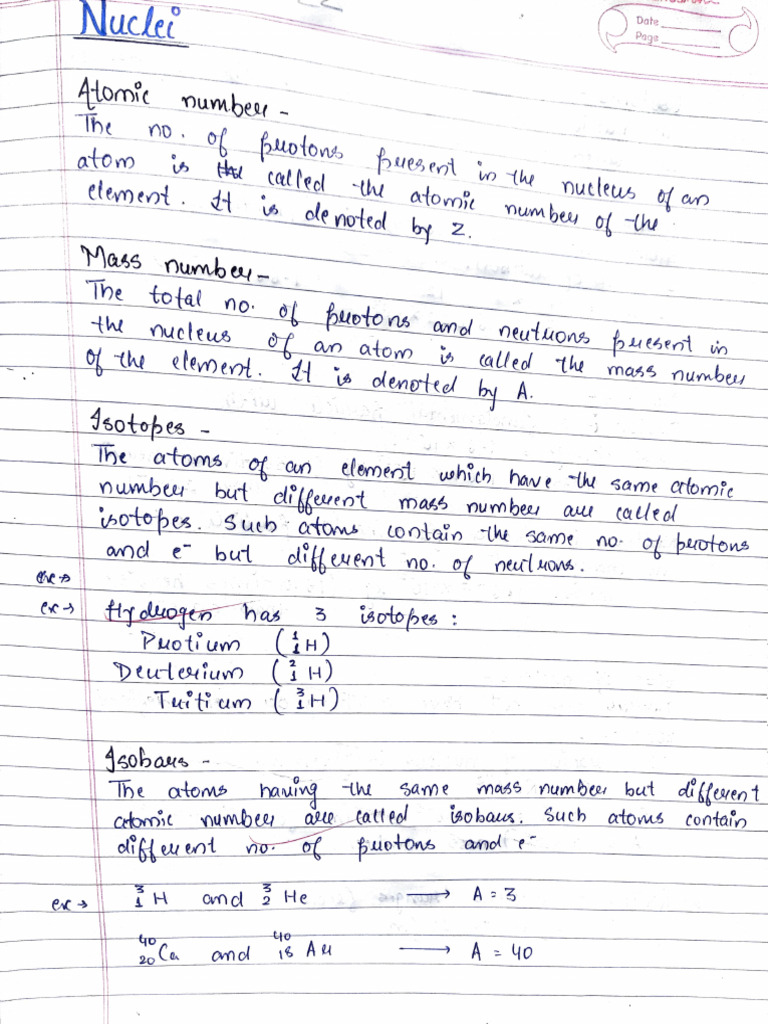 Nuclei
Date
Page
Atomic number -
The no. of protons present in the nucleus of an
atom is the called the atomic number of the
element. It is denoted by Z.
Mass number -
The total no. of protons and neutrons present in
the nucleus of an atom is called the mass number
of the element. It is denoted by A.
Isotopes -
The atoms of an element which have the same atomic
number but different mass number are called
isotopes. Such atoms contain the same no. of protons
and e⁻ but different no. of neutrons.
ex → Hydrogen has 3 isotopes :
Protium (¹₁H)
Deuterium (²₁H)
Tritium (³₁H)
Isobars -
The atoms having the same mass number but different
atomic number are called isobars. Such atoms contain
different no. of protons and e⁻
ex → ³₁H and ³₂He → A = 3
⁴⁰₂₀Ca and ⁴⁰₁₈Ar → A = 40